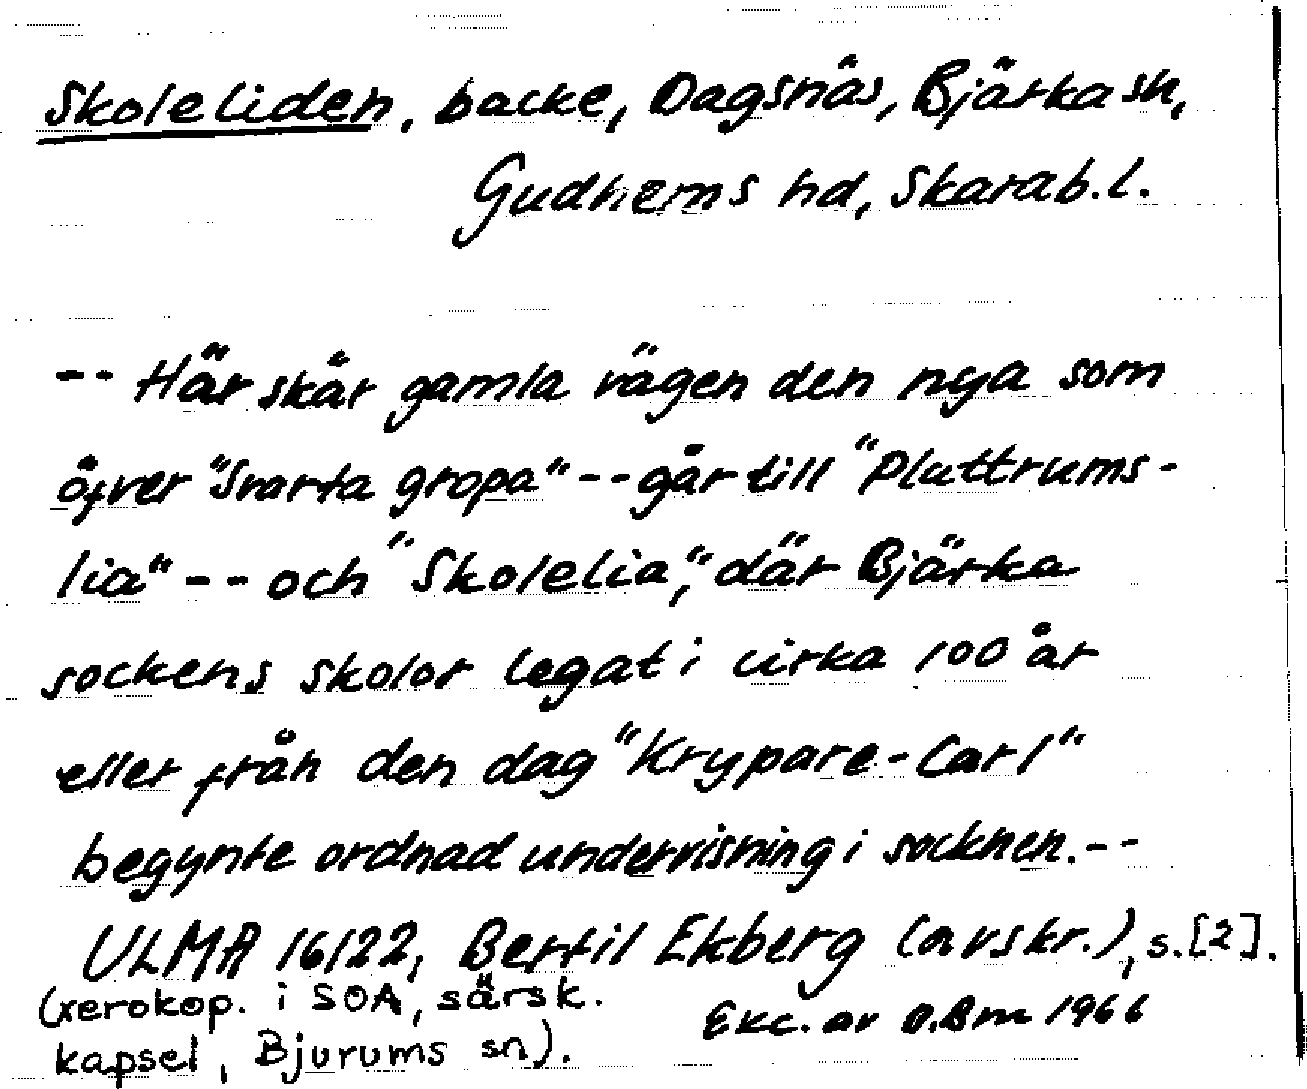 Skoleliden, backe, Dagsnäs, Bjärka sn,
Gudhems hd, Skarab.l.
-- Här skär gamla vägen den nya som
öfver "Svarta gropa" -- går till "Pluttrums-
lia" -- och "Skolelia", där Bjärka
sockens skolor legat i cirka 100 år
eller från den dag "Krypare-Carl"
begynte ordnad undervisning i socknen. --
ULMA 16122, Bertil Ekberg (avskr.), s. [2].
(xerokop. i SOA, särsk.
kapsel, Bjurums sn).
Exc. av O.Bm 1966